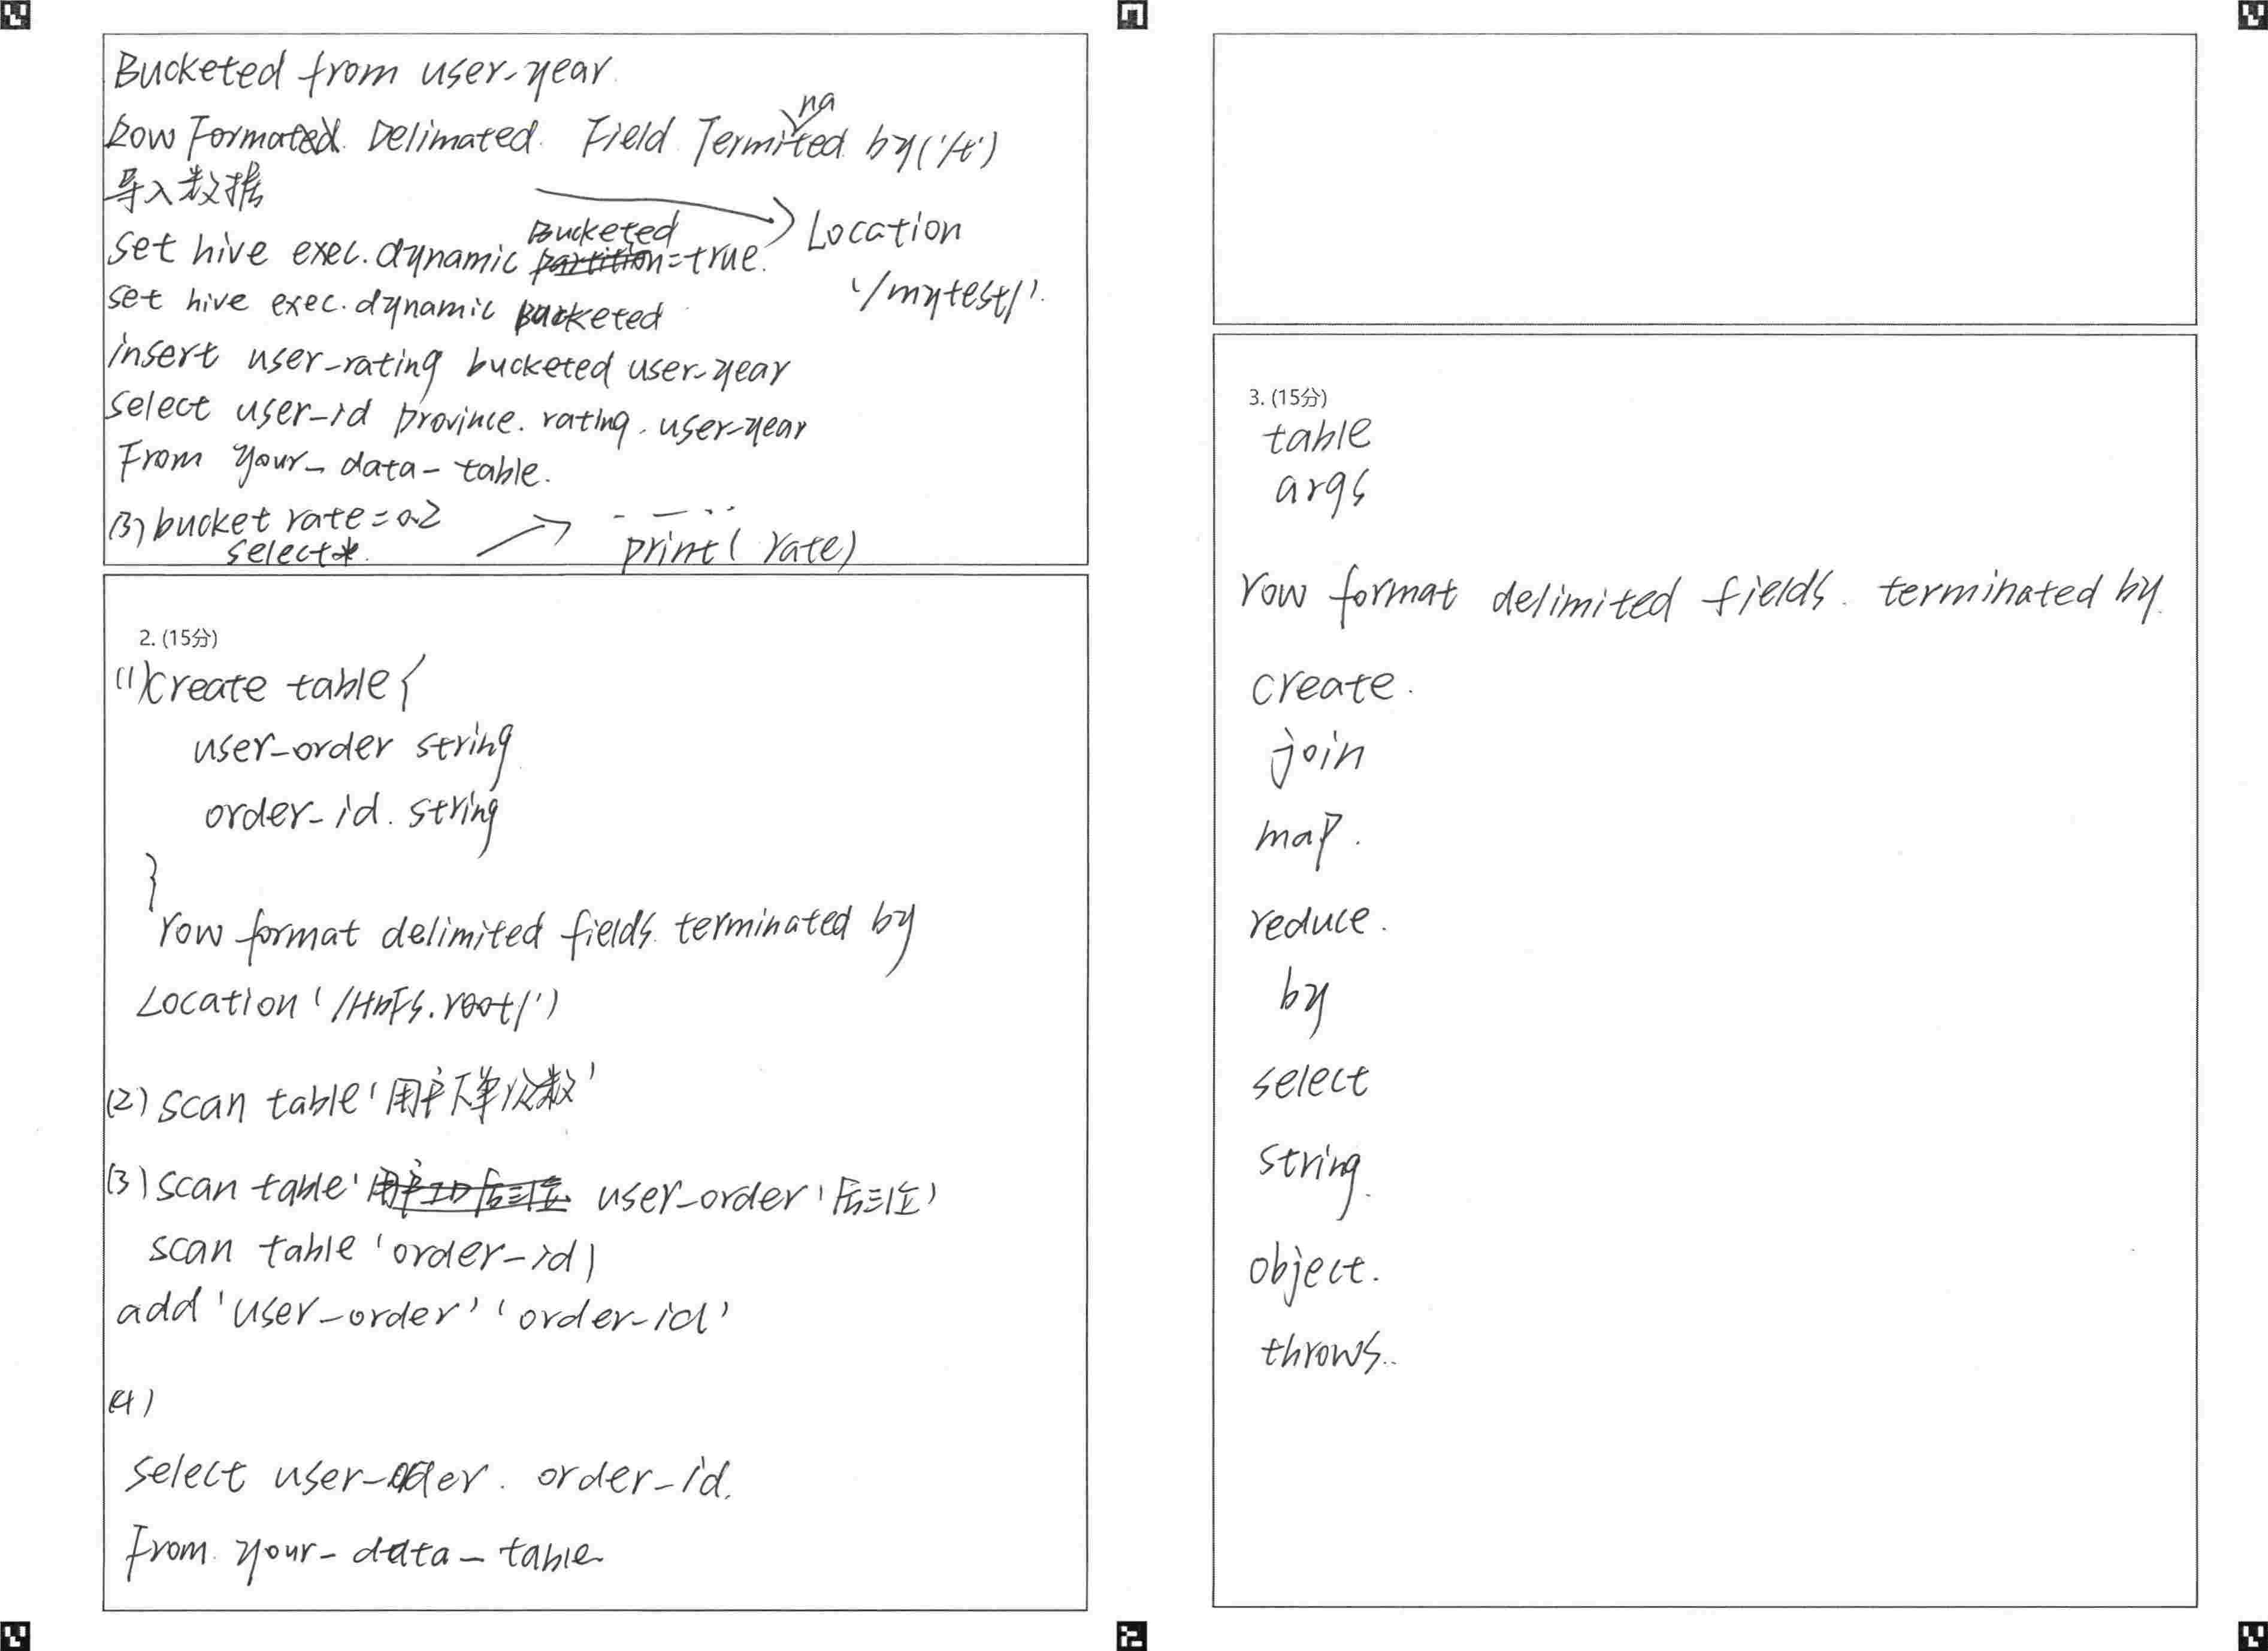 Bucketed from user-year
Row Formated Delimated. Field Terminated by('/t')
导入数据
Location
'/mytest/'.
set hive exec.dynamic Bucketed =true.
set hive exec.dynamic bucketed
insert user-rating bucketed user-year
select user-id province. rating. user-year
From your-data-table.
(3) bucket rate=0.2
select*.
print( rate)
2. (15分)
(1)create table{
user-order string
order-id. string
}
row format delimited fields. terminated by
Location('/HDFS.root/')
(2) scan table'用户下单次数'
(3) scan table' user-order'后三位'
scan table 'order-id'
add 'user-order' 'order-id'
(4)
select user-order. order-id.
From. your-data-table
3. (15分)
table
args
row format delimited fields. terminated by.
create.
join
map.
reduce.
by
select
string.
object.
throws..